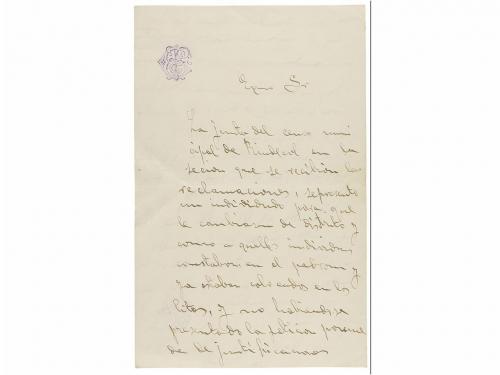 Exmo Sr
La Junta del censo muni
cipal de en la
sesion que se recibion las
reclamaciones, se presento
un individuo para que
le cambiasen de distrito y
como aquellos individuos
constaban en el padron y
ya estaban colocados en las
listas, y no habiendose
presentado la peticion
de justificaciones